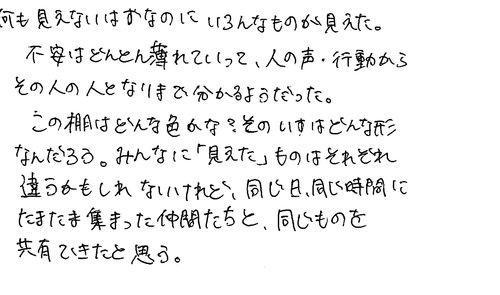 何も見えないはずなのにいろんなものが見えた。
不安はどんどん薄れていって、人の声・行動から
その人の人となりまで分かるようだった。
この棚はどんな色かな？そのいすはどんな形
なんだろう。みんなに「見えた」ものはそれぞれ
違うかもしれないけれど、同じ日、同じ時間に
たまたま集まった仲間たちと、同じものを
共有できたと思う。